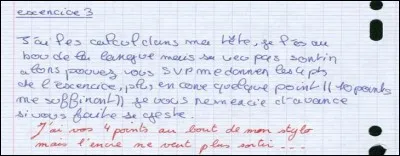 exercice 3
J'ai les calcul dans ma tête, je l'ès au
bou de la langue mais sa veu pas sortir
alors pouvez vous SVP me donner les 4 pts
de l'exercice, plus encore quelque point (( 10 points
me suffiront)) je vous remercie d'avance
si vous faite se geste.
J'ai vos 4 points au bout de mon stylo
mais l'encre ne veut plus sortir....